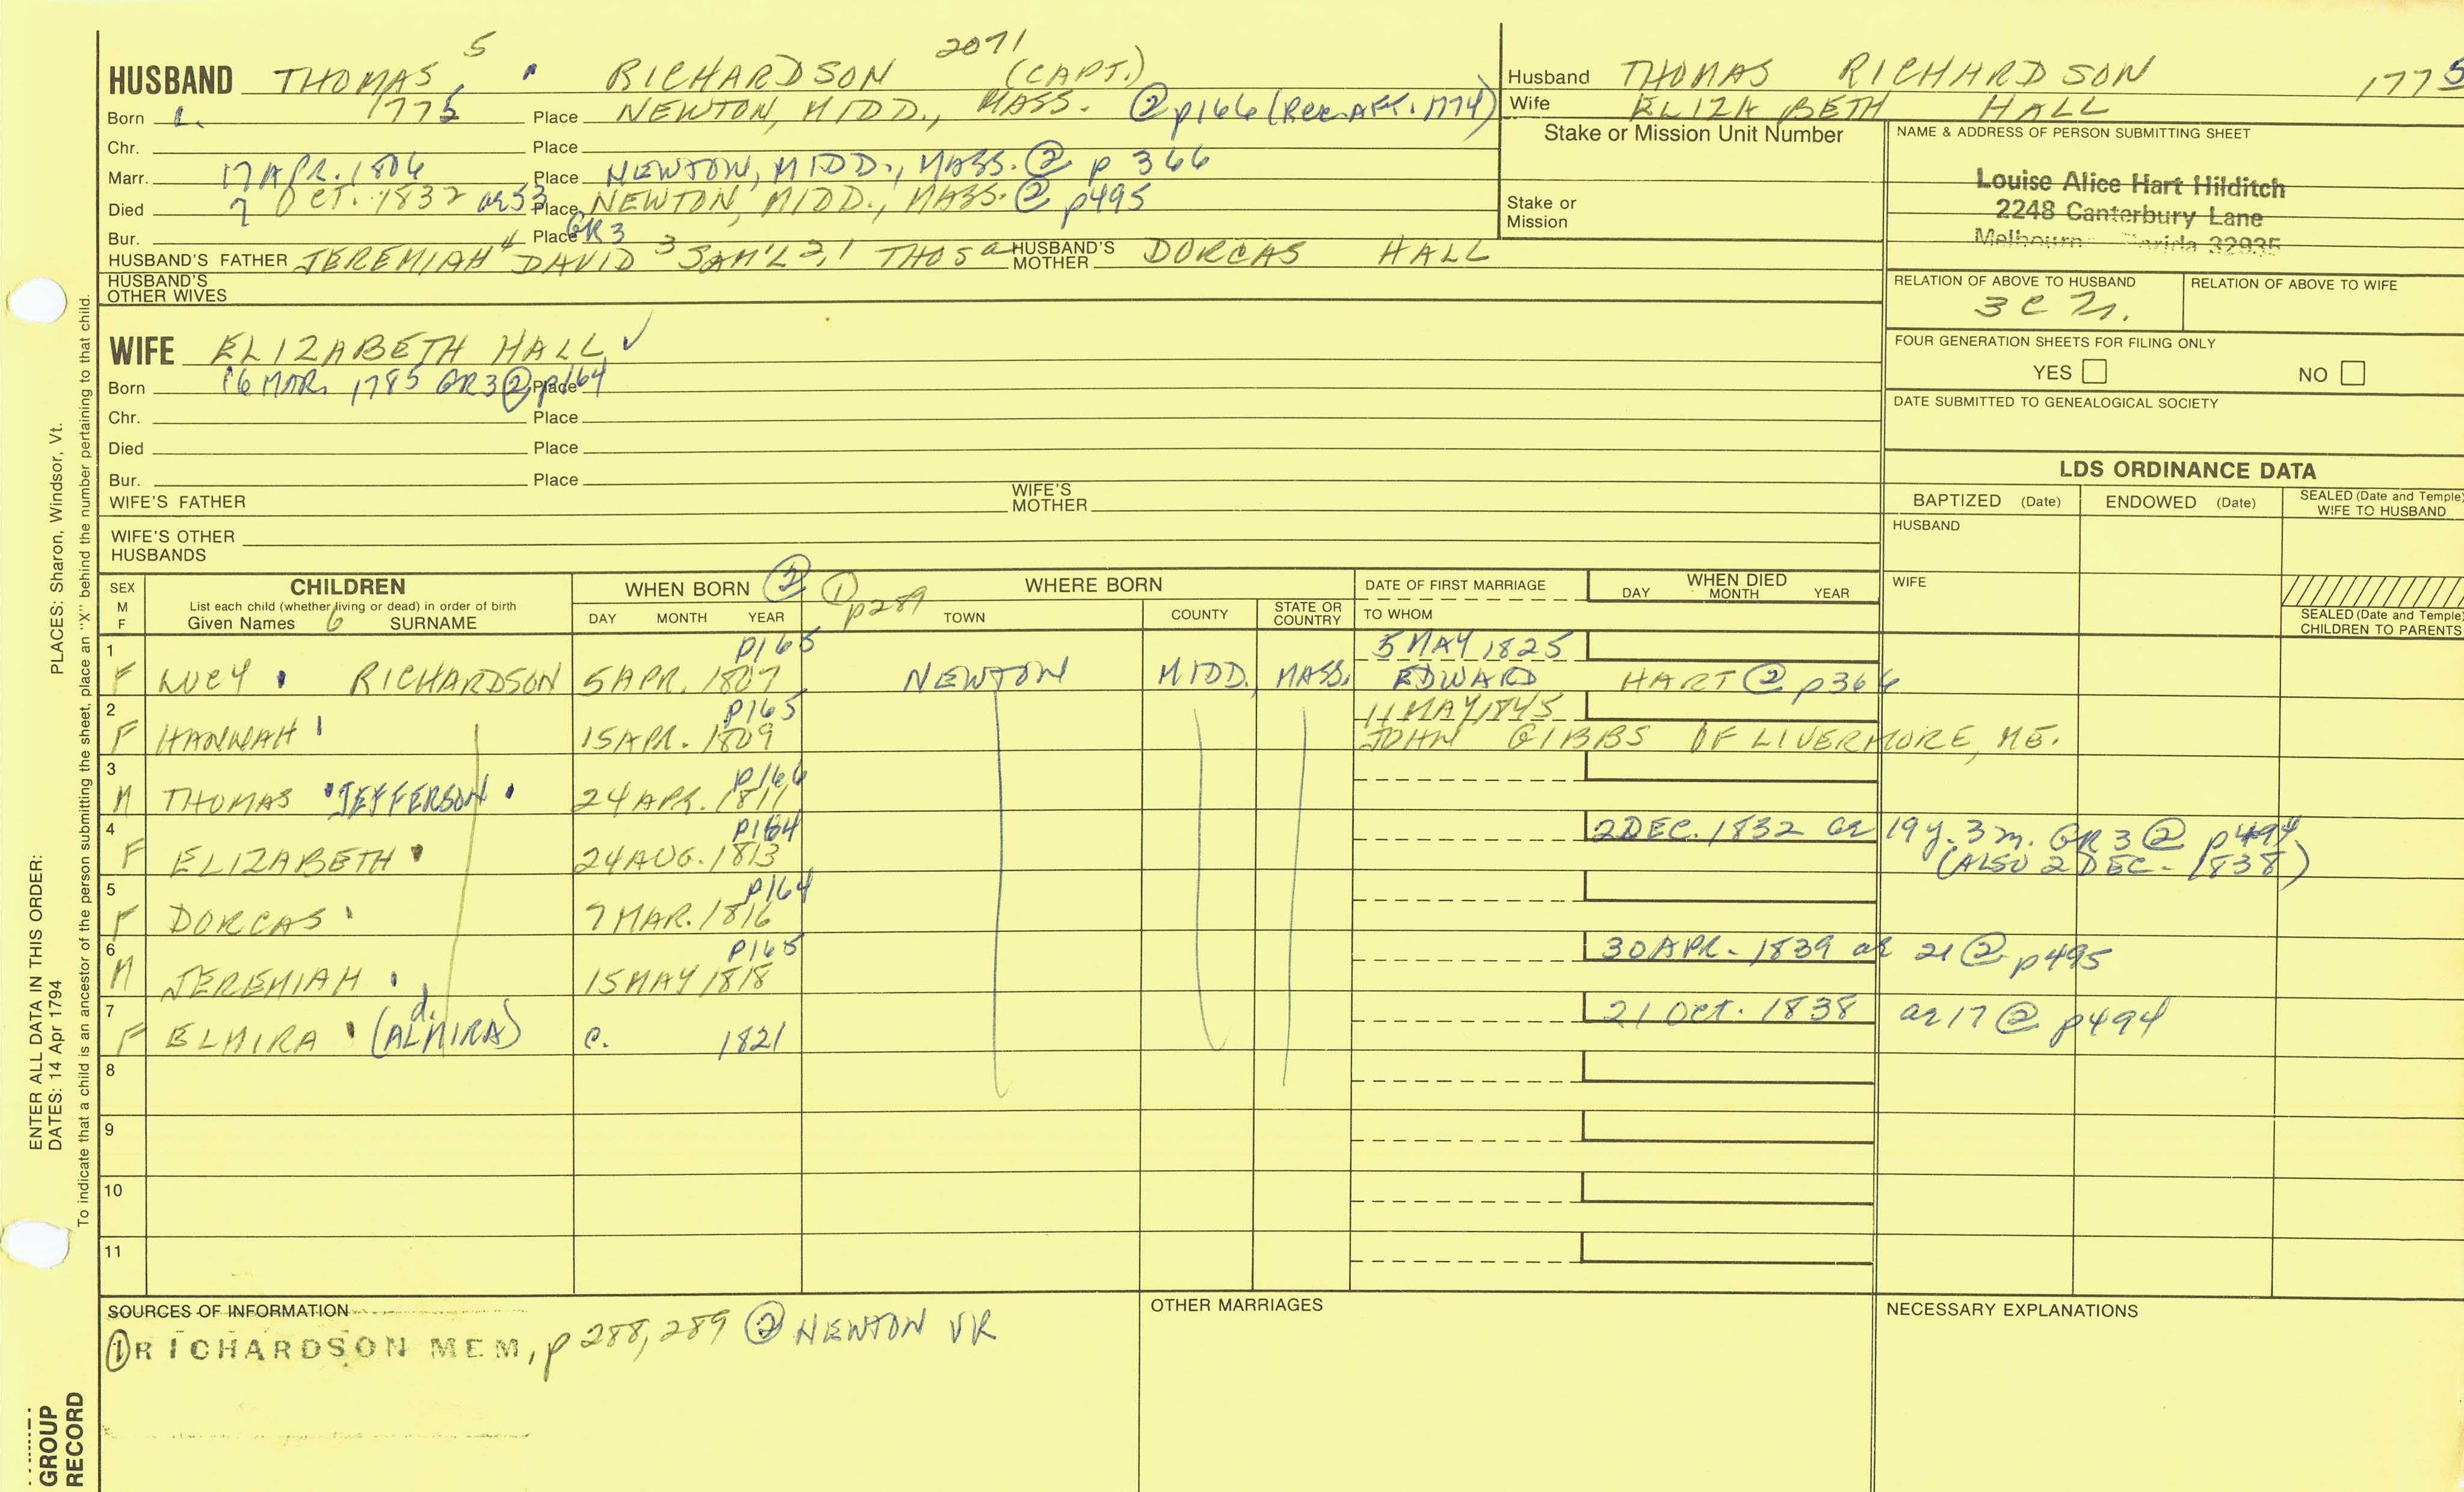 HUSBAND THOMAS 5 RICHARDSON 2071 (CAPT.)
Born 1775 Place NEWTON, MIDD., MASS. ② p166 (Rec. AFT. 1774)
Chr. Place
Marr. 17 APR. 1806 Place NEWTON, MIDD., MASS. ② p 366
Died 7 OCT. 1832 ae 53 Place NEWTON, MIDD., MASS. ② p495
Bur. Place GR 3
HUSBAND'S FATHER JEREMIAH 4 DAVID 3 SAM'L 2,1 THOS a HUSBAND'S MOTHER DORCAS HALL
HUSBAND'S OTHER WIVES
Husband THOMAS RICHARDSON 1775
Wife ELIZABETH HALL
Stake or Mission Unit Number
Stake or Mission
NAME & ADDRESS OF PERSON SUBMITTING SHEET
Louise Alice Hart Hilditch
2248 Canterbury Lane
Melbourn 32935
RELATION OF ABOVE TO HUSBAND
3 C
RELATION OF ABOVE TO WIFE
FOUR GENERATION SHEETS FOR FILING ONLY
YES NO
DATE SUBMITTED TO GENEALOGICAL SOCIETY
WIFE ELIZABETH HALL ✓
Born 16 MAR. 1785 GR 3 ② p164 Place
Chr. Place
Died Place
Bur. Place
WIFE'S FATHER WIFE'S MOTHER
WIFE'S OTHER HUSBANDS
LDS ORDINANCE DATA
BAPTIZED (Date) ENDOWED (Date) SEALED (Date and Temple) WIFE TO HUSBAND
HUSBAND
WIFE
SEALED (Date and Temple) CHILDREN TO PARENTS
SEX M F
CHILDREN
List each child (whether living or dead) in order of birth
Given Names 6 SURNAME
WHEN BORN ②
DAY MONTH YEAR
① p289 WHERE BORN
TOWN COUNTY STATE OR COUNTRY
DATE OF FIRST MARRIAGE
TO WHOM
WHEN DIED
DAY MONTH YEAR
1 p165 5 MAY 1825
F LUCY RICHARDSON 5 APR. 1807 NEWTON MIDD. MASS. EDWARD HART ② p366
2 p165 11 MAY 1845
F HANNAH 15 APR. 1809 JOHN GIBBS OF LIVERMORE, ME.
3 p166
M THOMAS JEFFERSON 24 APR. 1811
4 p164 2 DEC. 1832 ae 19 y. 3 m. GR 3 ② p494
F ELIZABETH 24 AUG. 1813 (ALSO 2 DEC. 1838)
5 p164
F DORCAS 7 MAR. 1816
6 p165 30 APR. 1839 ae 21 ② p495
M JEREMIAH 15 MAY 1818
7 21 OCT. 1838 ae 17 ② p494
F ELMIRA d. (ALMIRA) c. 1821
8
9
10
11
SOURCES OF INFORMATION
① RICHARDSON MEM, p 288, 289 ② NEWTON VR
OTHER MARRIAGES
NECESSARY EXPLANATIONS
ENTER ALL DATA IN THIS ORDER:
DATES: 14 Apr 1794 PLACES: Sharon, Windsor, Vt.
To indicate that a child is an ancestor of the person submitting the sheet, place an "X" behind the number pertaining to that child.
GROUP
RECORD